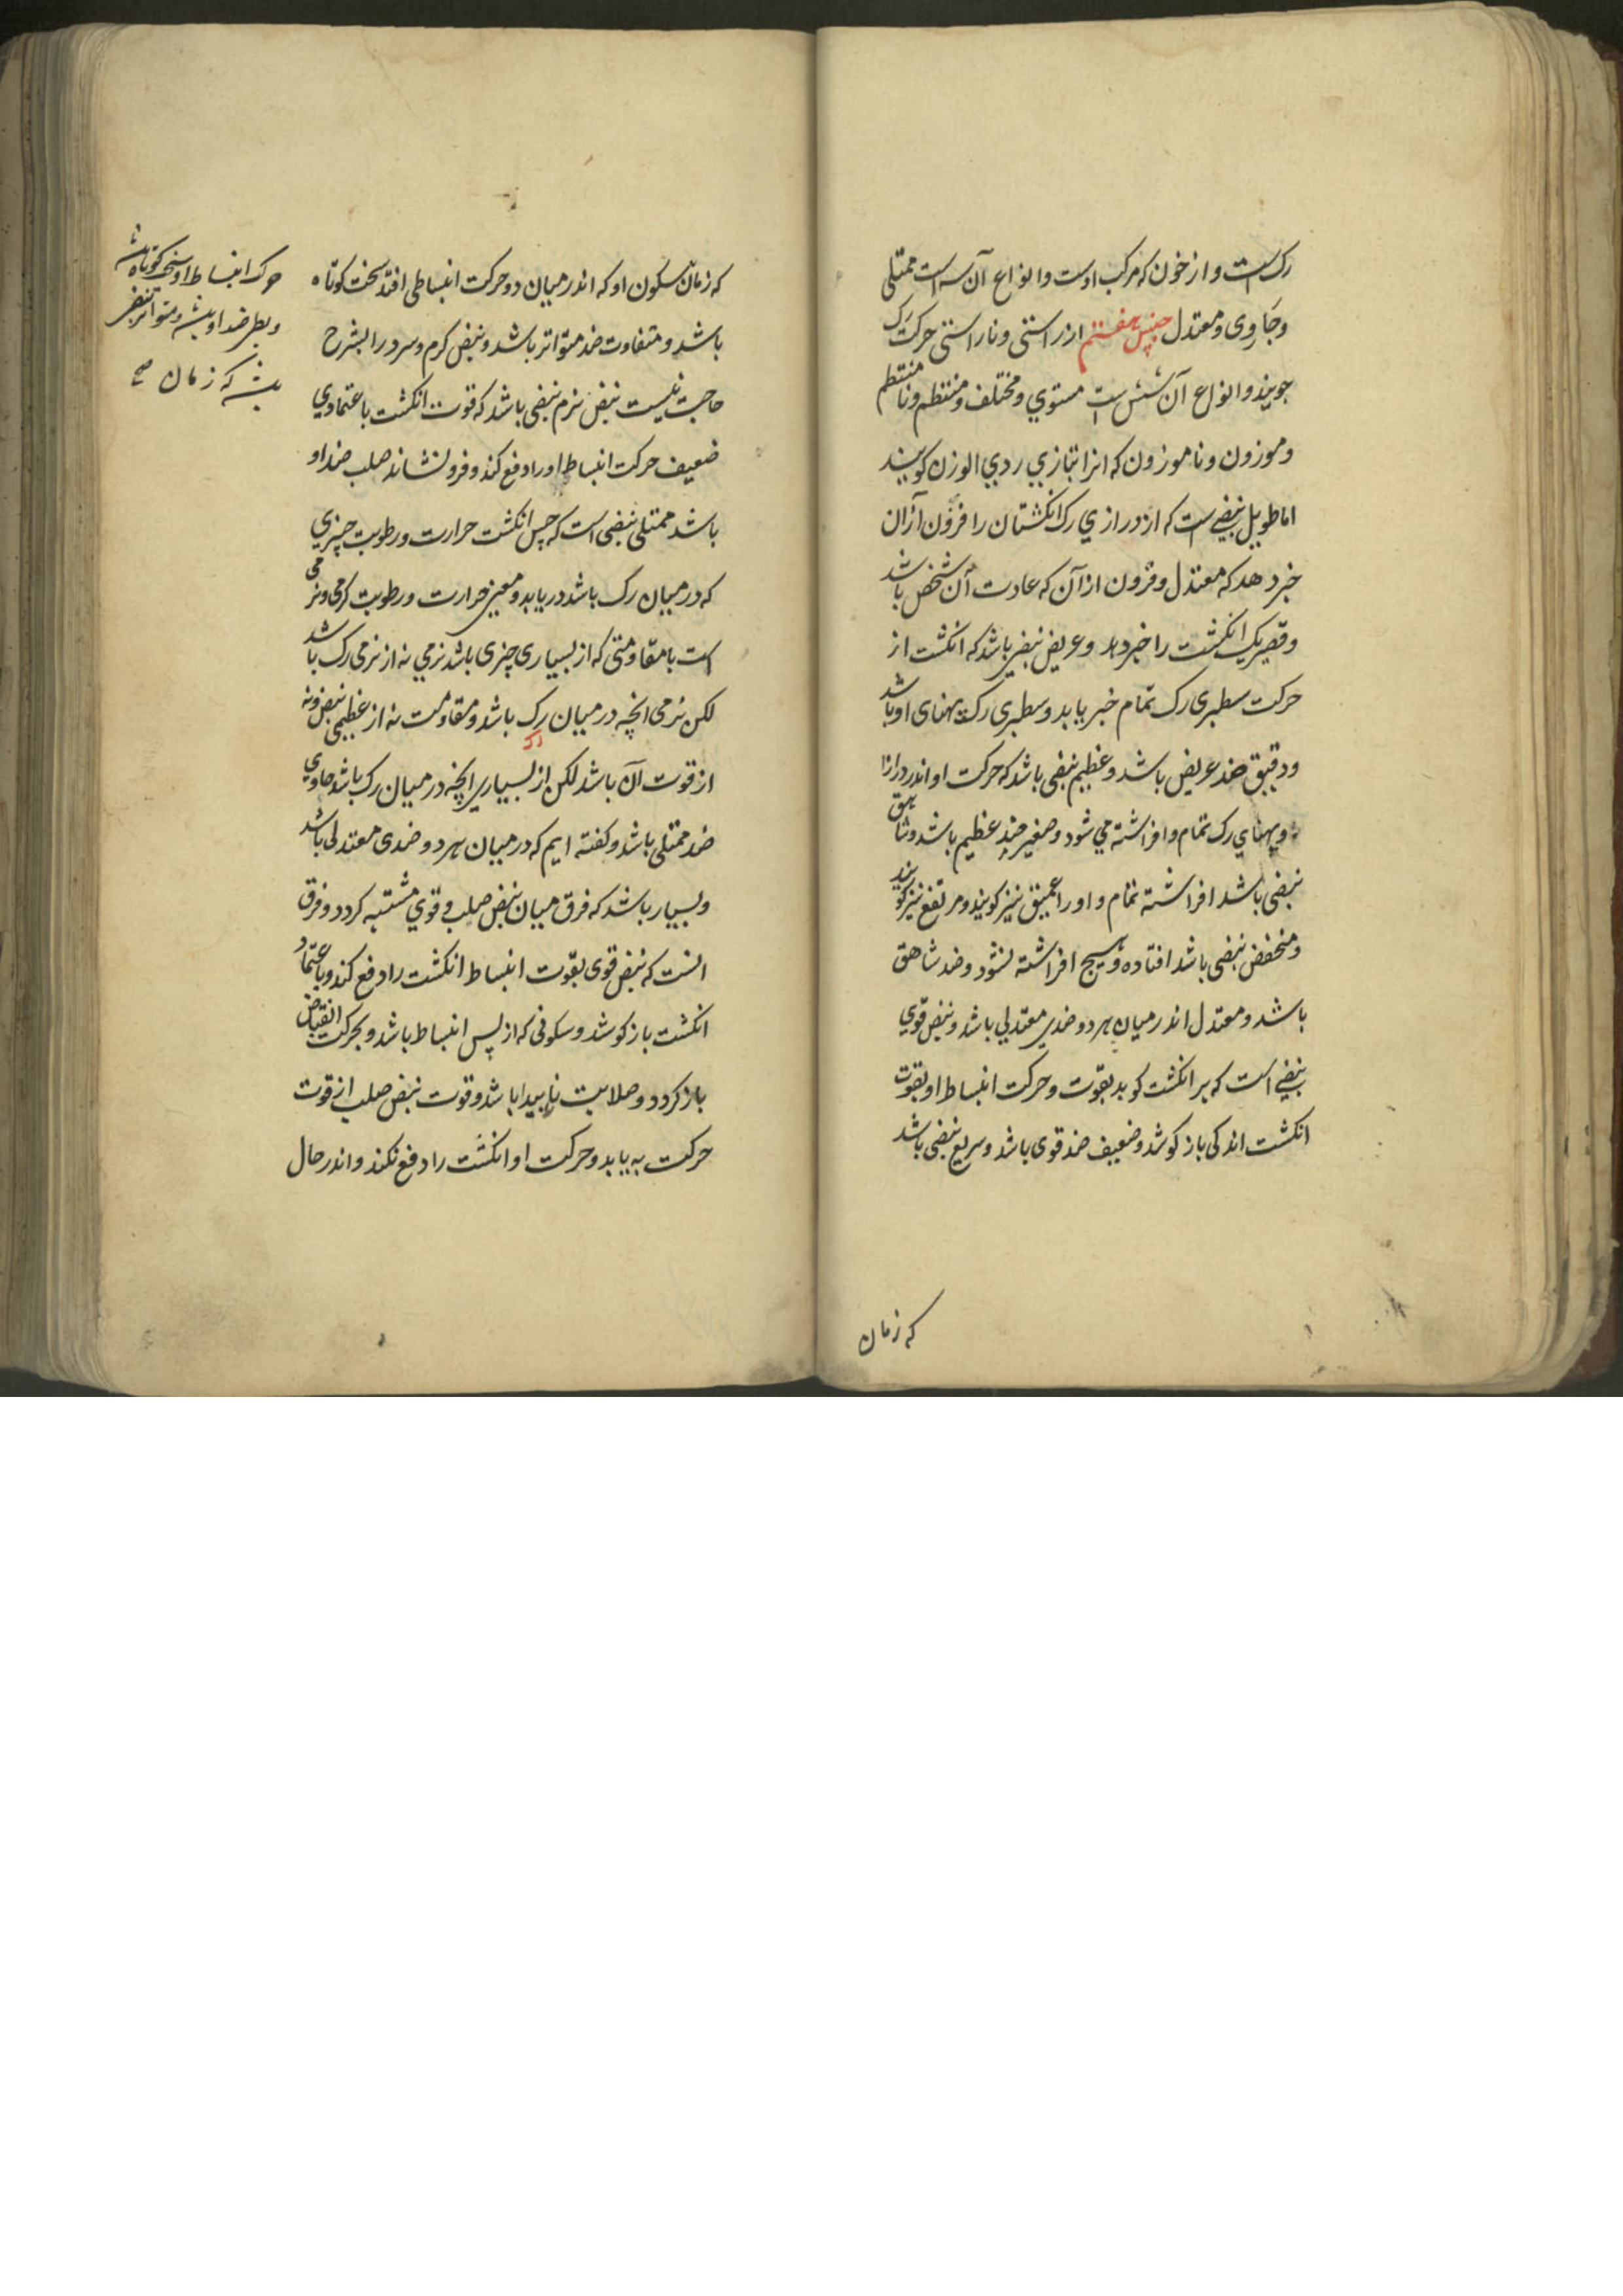 رک است و از خون که مرکب اوست و انواع آن سه است ممتلی
و جاوی و معتدل جنس هفتم از راستی و ناراستی حرکت رک
جویند و انواع آن شش است مستوی و مختلف و منتظم و نامنتظم
و موزون و ناموزون که انرا بتازی ردی الوزن کویند
اما طویل نبضی است که از درازی رک انکشتان را فزون از آن
خبر دهد که معتدل و فزون از آن که عادت آن شخص باشد
و قصیر یک انکشت را خبر دهد و عریض نبضی باشد که انکشت از
حرکت سطبری رک تمام خبر یابد و سطبری رک پهنای او باشد
و دقیق ضد عریض باشد و عظیم نبضی باشد که حرکت او اندر درازا
و پهنای رک تمام و افراشته می شود و صغیر ضد عظیم باشد و شاهق
نبضی باشد افراشته تمام و او را عمیق نیز کویند و مرتفع نیز کویند
و منخفض نبضی باشد افتاده و هیچ افراشته نشود و ضد شاهق
باشد و معتدل اندر میان هر دو ضدی معتدلی باشد و نبض قوی
نبضی است که بر انکشت کوبد بقوت و حرکت انبساط او بقوت
انکشت اندکی باز کوشد و ضعیف ضد قوی باشد و سریع نبضی باشد
که زمان
که زمان سکون او که اندر میان دو حرکت انبساطی افتد سخت کوتاه
باشد و متفاوت ضد متواتر باشد و نبض کرم و سرد را بشرح
حاجت نیست نبض نرم نبضی باشد که قوت انکشت باعتمادی
ضعیف حرکت انبساط او را دفع کند و فرو نشاند صلب ضد او
باشد ممتلی نبضی است که حس انکشت حرارت و رطوبت چیزی
که در میان رک باشد دریابد و معنی حرارت و رطوبت کرمی و نرمی
است با مقاومتی که از بسیاری چیزی باشد نرمی نه از نرمی رک باشد
لکن نرمی انچه در میان رک باشد و مقاومت نه از عظیمی نبض و نه
از قوت آن باشد لکن از بسیاری انچه در میان رک باشد جاوی
ضد ممتلی باشد و کفته ایم که در میان هر دو ضدی معتدلی باشد
و بسیار باشد که فرق میان نبض صلب و قوی مشتبه کردد و فرق
انست که نبض قوی بقوت انبساط انکشت را دفع کند و باعتماد
انکشت باز کوشد و سکونی که از پس انبساط باشد و بحرکت انقباض
باز کردد و صلابت ناپیدا باشد و قوت نبض صلب از قوت
حرکت به یابد و حرکت او انکشت را دفع نکند و اندر حال
حرکت انبساط او سخت کوتاه باشد
و بطی ضد او باشد و متواتر نبضی
باشد که زمان صح